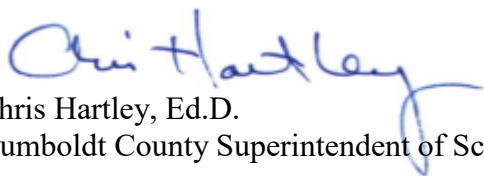 Chris Hartley
hris Hartley, Ed.D.
umboldt County Superintendent of Sc